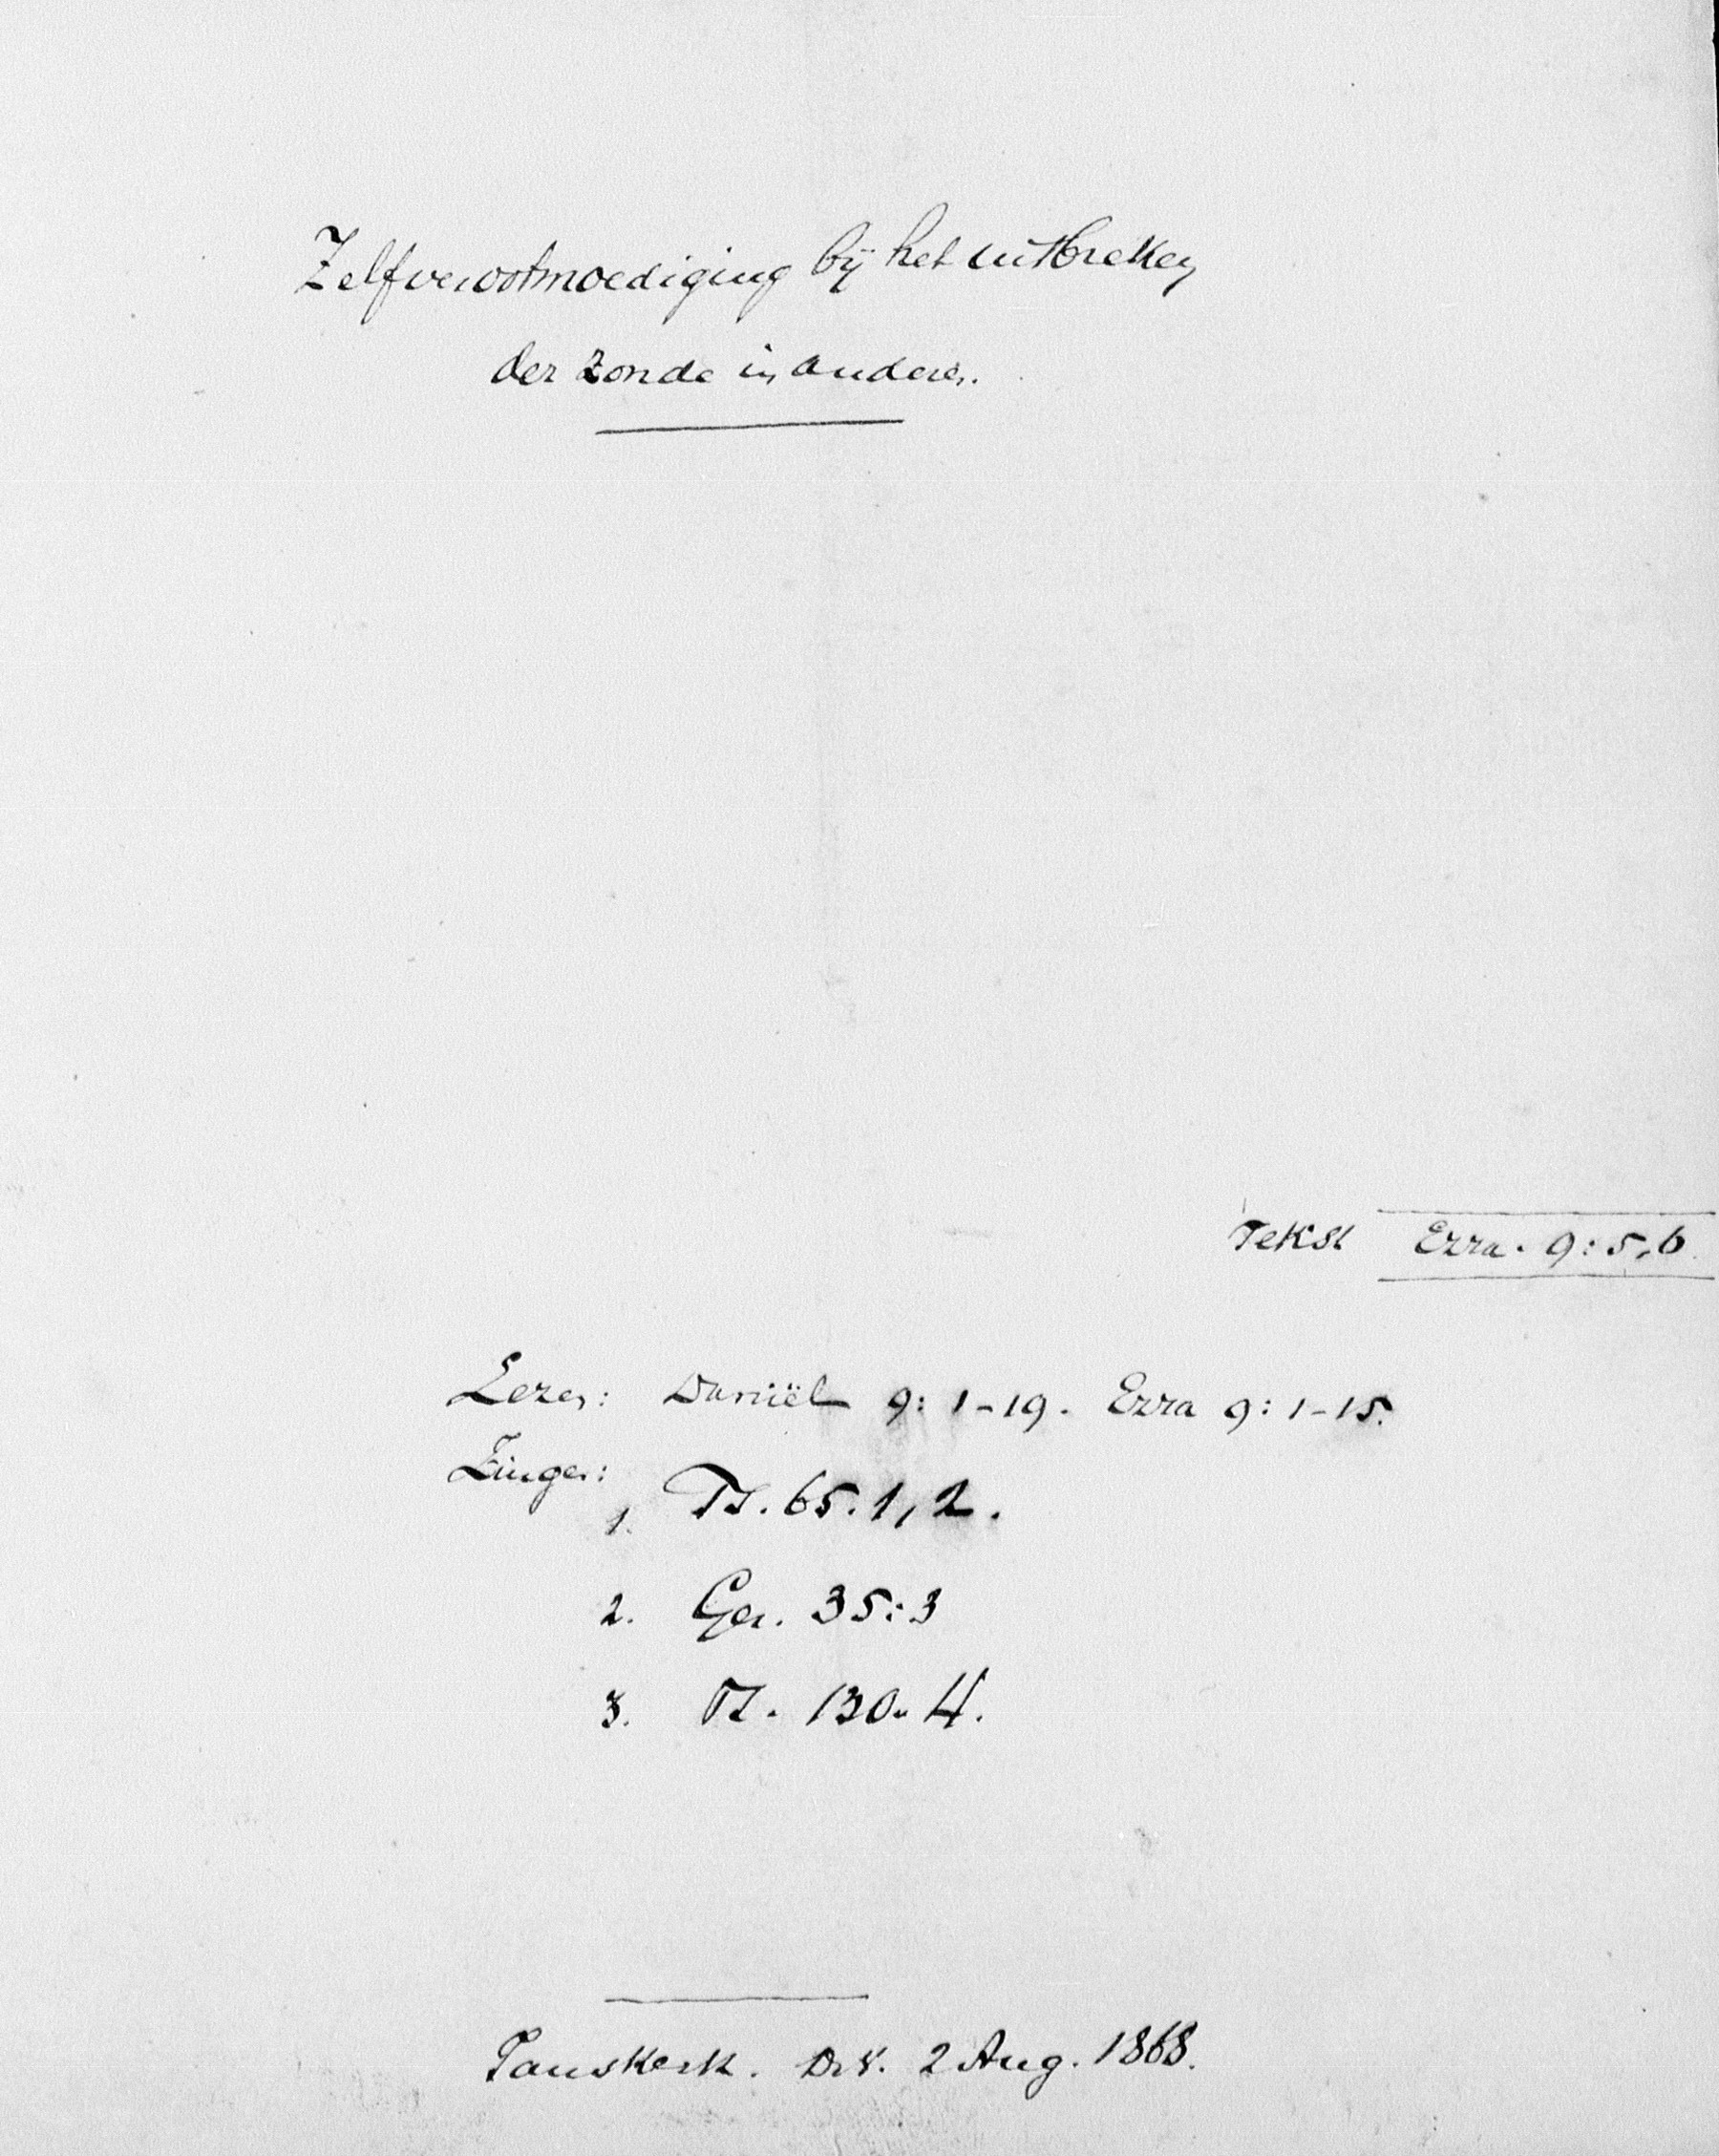 Zelfverootmoediging bij het uitbreken
der zonde in anderen.
Tekst Ezra. 9:5,6.
Lezen: Daniël 9:1-19. Ezra 9:1-15.
Zingen:
1. Ps. 65.1,2.
2. Gez. 35:3
3. Ps. 130.4.
2 Aug. 1868.